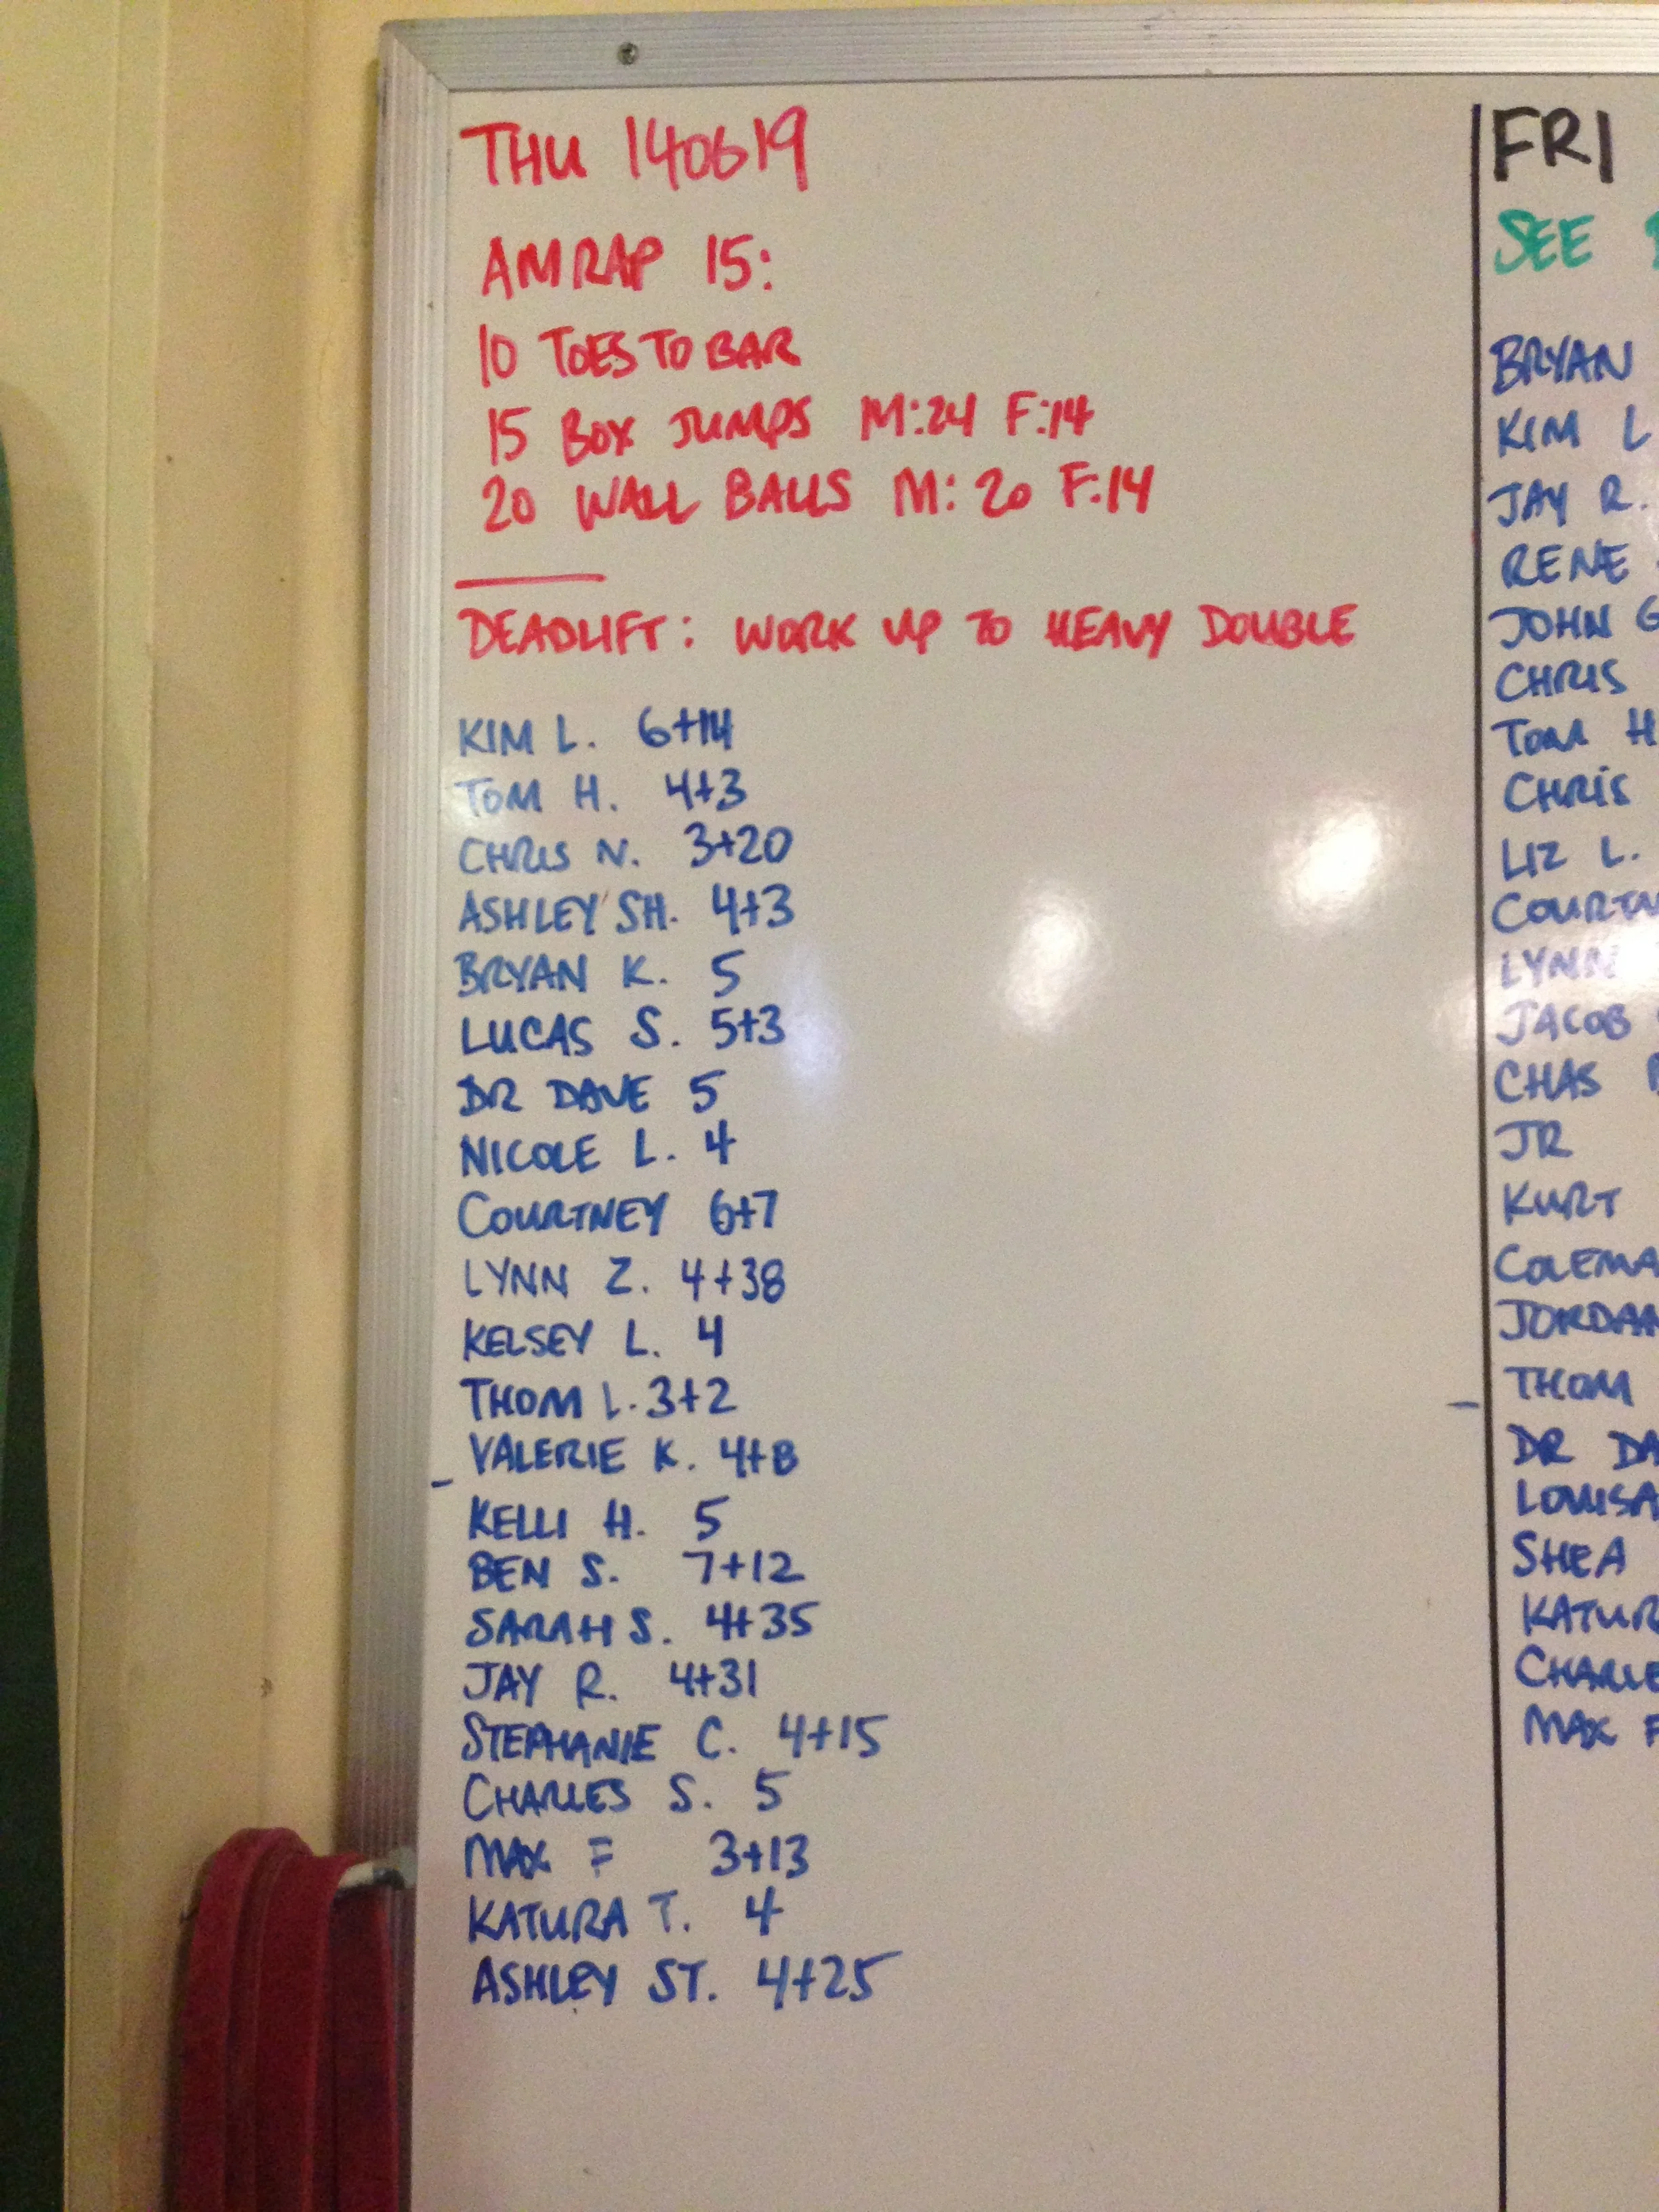 THU 140619
AMRAP 15:
10 TOES TO BAR
15 BOX JUMPS M:24 F:14
20 WALL BALLS M: 20 F:14
DEADLIFT: WORK UP TO HEAVY DOUBLE
KIM L. 6+14
TOM H. 4+3
CHRIS N. 3+20
ASHLEY SH. 4+3
BRYAN K. 5
LUCAS S. 5+3
DR DAVE 5
NICOLE L. 4
COURTNEY 6+7
LYNN Z. 4+38
KELSEY L. 4
THOM L. 3+2
VALERIE K. 4+8
KELLI H. 5
BEN S. 7+12
SARAH S. 4+35
JAY R. 4+31
STEPHANIE C. 4+15
CHARLES S. 5
MAX F 3+13
KATURA T. 4
ASHLEY ST. 4+25
FRI
SEE
BRYAN
KIM L
JAY R.
RENE
JOHN G
CHRIS
TOM H
CHRIS
LIZ L.
COURTN
LYNN
JACOB
CHAS
JR
KURT
COLEMA
JORDAN
THOM
DR DA
LOUISA
SHEA
KATUR
CHARLE
MAX F